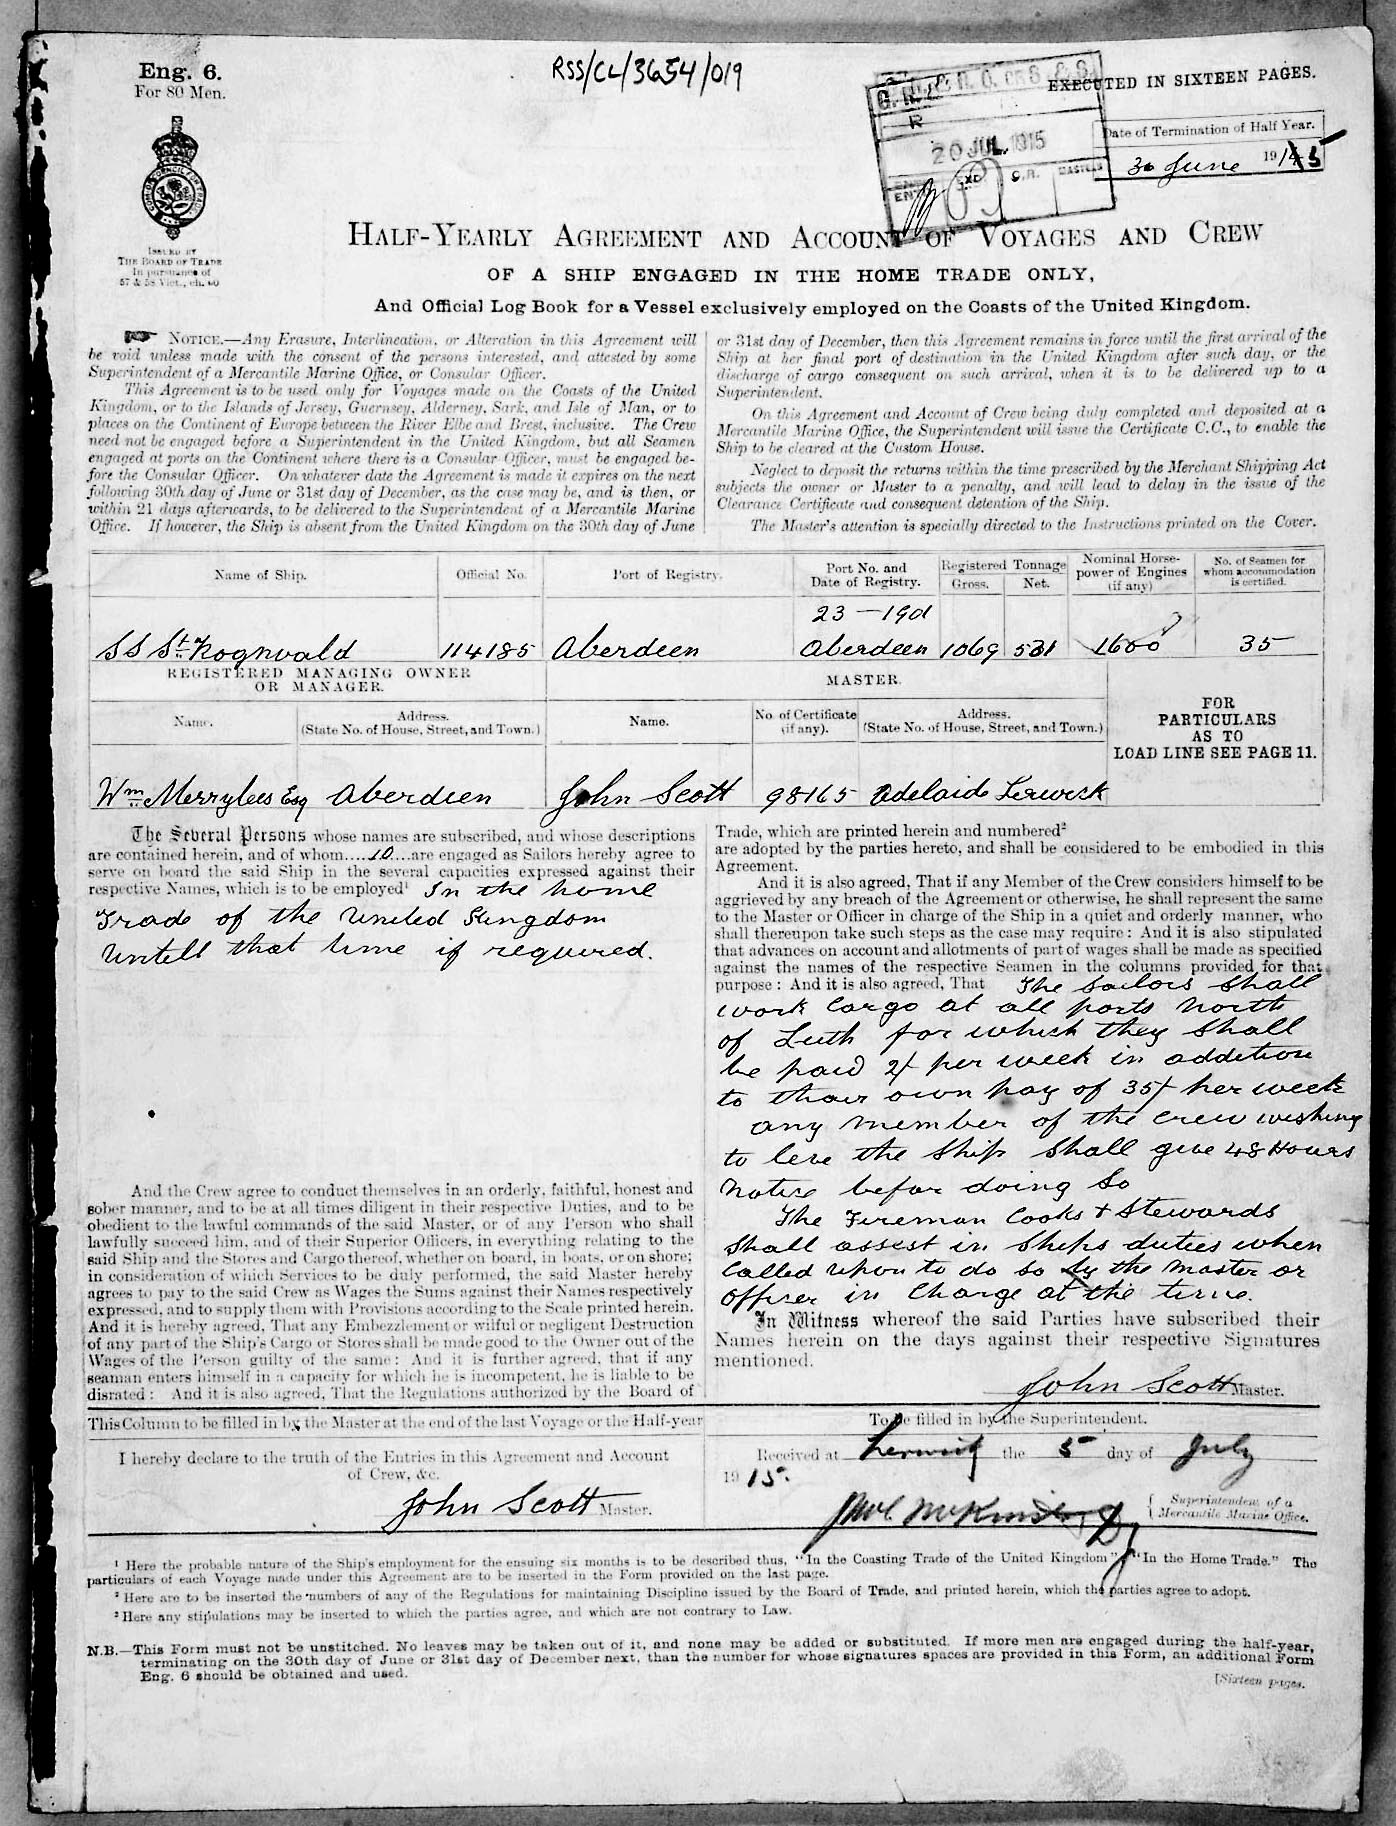 Eng. 6.
For 80 Men.
RSS/CL/3654/019
EXECUTED IN SIXTEEN PAGES.
20 JUL. 1915
Date of Termination of Half Year.
30 June 1915
ISSUED BY
THE BOARD OF TRADE
In pursuance of
57 & 58 Vict., ch. 60
HALF-YEARLY AGREEMENT AND ACCOUNT OF VOYAGES AND CREW
OF A SHIP ENGAGED IN THE HOME TRADE ONLY,
And Official Log Book for a Vessel exclusively employed on the Coasts of the United Kingdom.
NOTICE.—Any Erasure, Interlineation, or Alteration in this Agreement will
be void unless made with the consent of the persons interested, and attested by some
Superintendent of a Mercantile Marine Office, or Consular Officer.
This Agreement is to be used only for Voyages made on the Coasts of the United
Kingdom, or to the Islands of Jersey, Guernsey, Alderney, Sark, and Isle of Man, or to
places on the Continent of Europe between the River Elbe and Brest, inclusive. The Crew
need not be engaged before a Superintendent in the United Kingdom, but all Seamen
engaged at ports on the Continent where there is a Consular Officer, must be engaged be-
fore the Consular Officer. On whatever date the Agreement is made it expires on the next
following 30th day of June or 31st day of December, as the case may be, and is then, or
within 21 days afterwards, to be delivered to the Superintendent of a Mercantile Marine
Office. If however, the Ship is absent from the United Kingdom on the 30th day of June
or 31st day of December, then this Agreement remains in force until the first arrival of the
Ship at her final port of destination in the United Kingdom after such day, or the
discharge of cargo consequent on such arrival, when it is to be delivered up to a
Superintendent.
On this Agreement and Account of Crew being duly completed and deposited at a
Mercantile Marine Office, the Superintendent will issue the Certificate C.C., to enable the
Ship to be cleared at the Custom House.
Neglect to deposit the returns within the time prescribed by the Merchant Shipping Act
subjects the owner or Master to a penalty, and will lead to delay in the issue of the
Clearance Certificate and consequent detention of the Ship.
The Master's attention is specially directed to the Instructions printed on the Cover.
Name of Ship. Official No. Port of Registry. Port No. and Date of Registry. Registered Tonnage Gross. Net. Nominal Horse-power of Engines (if any) No. of Seamen for whom accommodation is certified.
23 — 19d
SS St. Rognvald 114185 Aberdeen Aberdeen 1069 531 1600 35
REGISTERED MANAGING OWNER
OR MANAGER.
MASTER.
Name. Address. (State No. of House, Street, and Town.) Name. No. of Certificate (if any). Address. (State No. of House, Street, and Town.)
FOR
PARTICULARS
AS TO
LOAD LINE SEE PAGE 11.
Wm. Merrylees Esq Aberdeen John Scott 98165 Adelaide Lerwick
The Several Persons whose names are subscribed, and whose descriptions
are contained herein, and of whom....10....are engaged as Sailors hereby agree to
serve on board the said Ship in the several capacities expressed against their
respective Names, which is to be employed¹ In the home
Trade of the United Kingdom
Untill that time if required.
And the Crew agree to conduct themselves in an orderly, faithful, honest and
sober manner, and to be at all times diligent in their respective Duties, and to be
obedient to the lawful commands of the said Master, or of any Person who shall
lawfully succeed him, and of their Superior Officers, in everything relating to the
said Ship and the Stores and Cargo thereof, whether on board, in boats, or on shore;
in consideration of which Services to be duly performed, the said Master hereby
agrees to pay to the said Crew as Wages the Sums against their Names respectively
expressed, and to supply them with Provisions according to the Scale printed herein.
And it is hereby agreed, That any Embezzlement or wilful or negligent Destruction
of any part of the Ship's Cargo or Stores shall be made good to the Owner out of the
Wages of the Person guilty of the same: And it is further agreed, that if any
seaman enters himself in a capacity for which he is incompetent, he is liable to be
disrated: And it is also agreed, That the Regulations authorized by the Board of
Trade, which are printed herein and numbered²
are adopted by the parties hereto, and shall be considered to be embodied in this
Agreement.
And it is also agreed, That if any Member of the Crew considers himself to be
aggrieved by any breach of the Agreement or otherwise, he shall represent the same
to the Master or Officer in charge of the Ship in a quiet and orderly manner, who
shall thereupon take such steps as the case may require: And it is also stipulated
that advances on account and allotments of part of wages shall be made as specified
against the names of the respective Seamen in the columns provided for that
purpose: And it is also agreed, That The Sailors Shall
work Cargo at all ports North
of Leith for which they Shall
be paid 2/ per week in addition
to thair own pay of 35/ per week
any member of the crew wishing
to leve the Ship Shall give 48 Hours
Notice befor doing So
The Fireman Cooks & Stewards
Shall assest in Ships duties when
Called upon to do so by the Master or
Officer in Charge at the time.
In Witness whereof the said Parties have subscribed their
Names herein on the days against their respective Signatures
mentioned.
John Scott Master.
This Column to be filled in by the Master at the end of the last Voyage or the Half-year
I hereby declare to the truth of the Entries in this Agreement and Account
of Crew, &c.
John Scott Master.
To be filled in by the Superintendent.
Received at Lerwick the 5 day of July
1915.
Superintendent of a
Mercantile Marine Office.
¹ Here the probable nature of the Ship's employment for the ensuing six months is to be described thus, "In the Coasting Trade of the United Kingdom" "In the Home Trade." The
particulars of each Voyage made under this Agreement are to be inserted in the Form provided on the last page.
² Here are to be inserted the numbers of any of the Regulations for maintaining Discipline issued by the Board of Trade, and printed herein, which the parties agree to adopt.
³ Here any stipulations may be inserted to which the parties agree, and which are not contrary to Law.
N.B.—This Form must not be unstitched. No leaves may be taken out of it, and none may be added or substituted. If more men are engaged during the half-year,
terminating on the 30th day of June or 31st day of December next, than the number for whose signatures spaces are provided in this Form, an additional Form
Eng. 6 should be obtained and used.
[Sixteen pages.